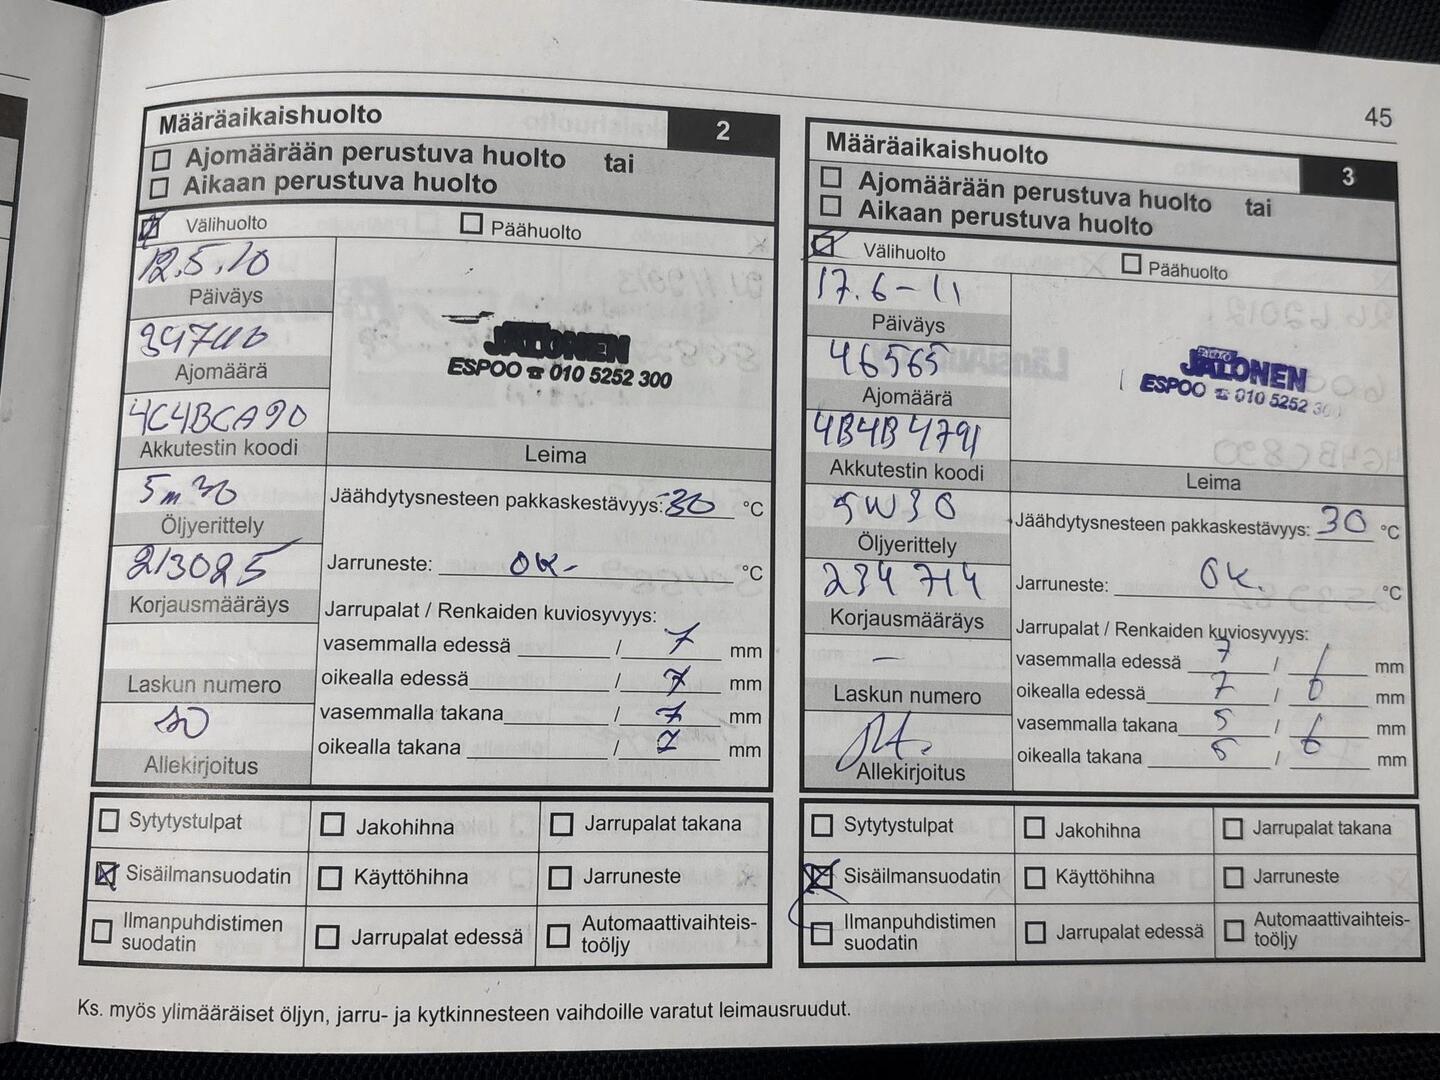 45
Määräaikaishuolto 2
Ajomäärään perustuva huolto tai
Aikaan perustuva huolto
Välihuolto
Päähuolto
12.5.10
Päiväys
Ajomäärä
4C4BCA90
Akkutestin koodi
JALONEN
ESPOO ☎ 010 5252 300
Leima
Öljyerittely
213025
Korjausmääräys
Laskun numero
Allekirjoitus
Jäähdytysnesteen pakkaskestävyys: -30 °C
Jarruneste: OK- °C
Jarrupalat / Renkaiden kuviosyvyys:
vasemmalla edessä / 7 mm
oikealla edessä / 7 mm
vasemmalla takana / 7 mm
oikealla takana / 7 mm
Sytytystulpat
Jakohihna
Jarrupalat takana
Sisäilmansuodatin
Käyttöhihna
Jarruneste
Ilmanpuhdistimen
suodatin
Jarrupalat edessä
Automaattivaihteis-
toöljy
Määräaikaishuolto 3
Ajomäärään perustuva huolto tai
Aikaan perustuva huolto
Välihuolto
Päähuolto
17.6-11
Päiväys
46565
Ajomäärä
4B4B4791
Akkutestin koodi
AUTO
JALONEN
ESPOO ☎ 010 5252 300
Leima
5W30
Öljyerittely
234714
Korjausmääräys
–
Laskun numero
Allekirjoitus
Jäähdytysnesteen pakkaskestävyys: 30 °C
Jarruneste: OK. °C
Jarrupalat / Renkaiden kuviosyvyys:
vasemmalla edessä 7 / mm
oikealla edessä 7 / 6 mm
vasemmalla takana 5 / 6 mm
oikealla takana 5 / 6 mm
Sytytystulpat
Jakohihna
Jarrupalat takana
Sisäilmansuodatin
Käyttöhihna
Jarruneste
Ilmanpuhdistimen
suodatin
Jarrupalat edessä
Automaattivaihteis-
toöljy
Ks. myös ylimääräiset öljyn, jarru- ja kytkinnesteen vaihdoille varatut leimausruudut.